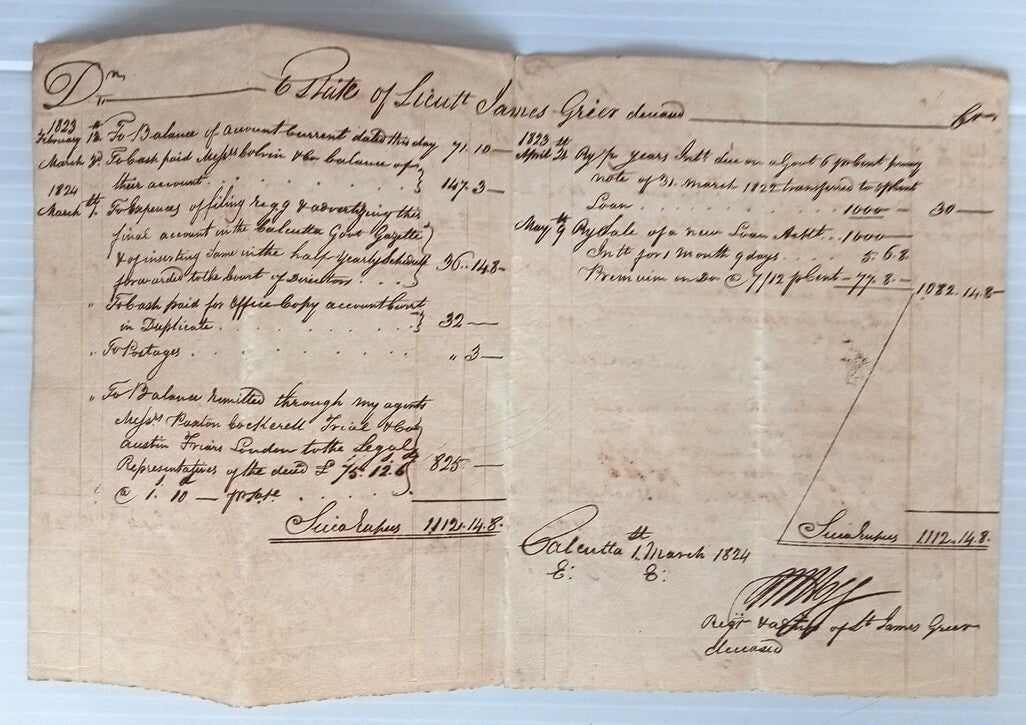 Dr. Estate of Lieutt James Grier deceased Cr
1823
February 12th To Balance of Account Current dated this day 71. 10 —
March 8 To Cash paid Messrs Colvin & Co balance of
their account . . . . 147. 3 —
1824
March 1th To Expences of filing regg & advertizing this
final account in the Calcutta Govt Gazette
& of inserting same in the half yearly schedule
forwarded to the Court of Directors . . . 36. 14. 8 —
" To Cash paid for Office Copy account Currt
in Duplicate . . . . 32 —
" To Postages . . . . " 3 —
" To Balance remitted through my agents
Messrs Paxton Cockerell Trial & Co
Austin Friars London to the Legal
Representatives of the deced £ 75. 12. 6 825 —
@ 1. 10 —
Sicca Rupees 1112. 14. 8.
1823
April By ½ years Intt due on a Govt 6 pr Cent promy
note of 31. March 1822 transferred to 5 pr Cent
Loan . . . . 1000 — 30 —
May 9th By Sale of a new Loan Ackt .. 1000 —
Intt for 1 month 9 days . . . . 5. 6. 8
Premium on Do @ 7/12 p Cent — 77. 8 — 1082. 14. 8
Sicca Rupees 1112. 14. 8.
Calcutta 1st March 1824
E: E:
Regr & of Lt James Grier
deceased